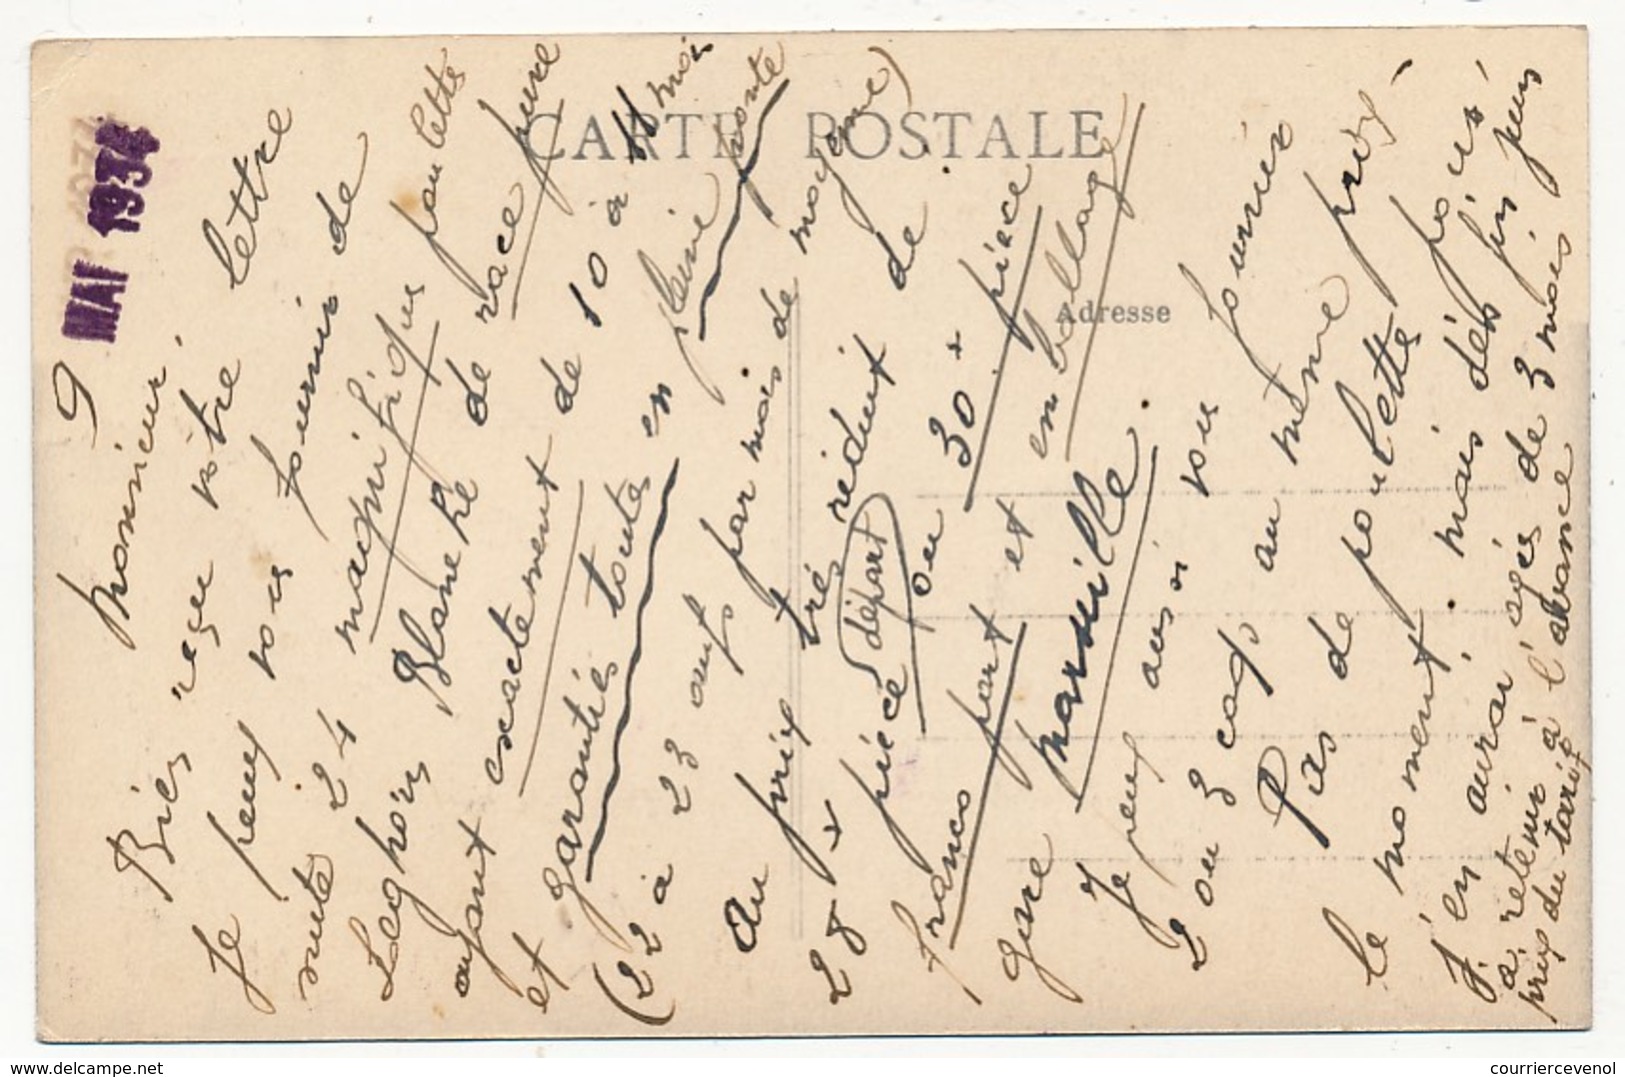 9 MAI 1934
CARTE POSTALE
Adresse
Monsieur,
Bien reçu votre lettre
Je peux vous fournir de
suite 24 magnifiques poulettes
Leghorn Blanche de race pure
ayant exactement de 10 à 11 mois
et garanties toutes en pleine ponte
(22 à 23 œufs par mois de moyenne)
Au prix très réduit de
28 + pièce départ ou 30 + pièce
francs port et emballage
gare Marseille.
Je peux aussi vous fournir
2 ou 3 coqs au même prix -
Pas de poulettes pour
le moment. mais dès fin juin
J'en aurai agés de 3 mois
à retenir à l'avance
prix du tarif
courriercevenol.com